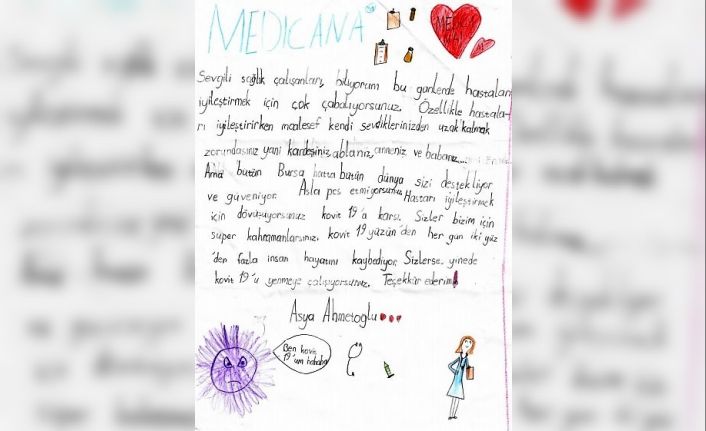 MEDICANA
MEDİCA
NA
Sevgili sağlık çalışanları, biliyorum bu günlerde hastaları
iyileştirmek için çok çabalıyorsunuz. Özellikle hastala-
rı iyileştirirken malesef kendi sevdiklerinizden uzak kalmak
zorundasınız yani kardeşiniz, ablanız, anneniz ve babanız...
Ama bütün Bursa hatta bütün dünya sizi destekliyor
ve güveniyor. Asla pes etmiyorsunuz. Hastarı iyileştirmek
için dövüşüyorsunuz kovit 19'a karsı. Sizler bizim için
süper kahramanlarsınız. kovit 19 yüzün'den her gün iki yüz
'den fazla insan hayatını kaybediyor. Sizlerse yinede
kovit 19'u yenmeye çalışıyorsunuz. Teşekkür ederim!
Asya Ahmetoglu
Ben kovit
19'um hahaha